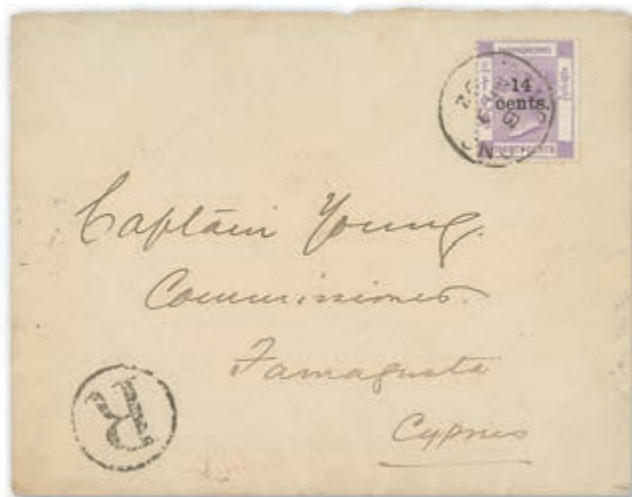 HONG KONG
14
cents.
Captain Young.
Commissioner.
Famagusta
Cyprus
R